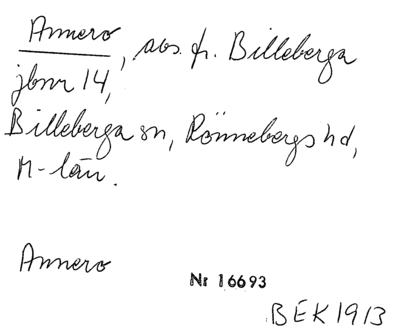 Annero, avs. fr. Billeberga
jbnr 14,
Billeberga sn, Rönnebergs hd,
M-län.
Annero
Nr 16693
BEK 1913